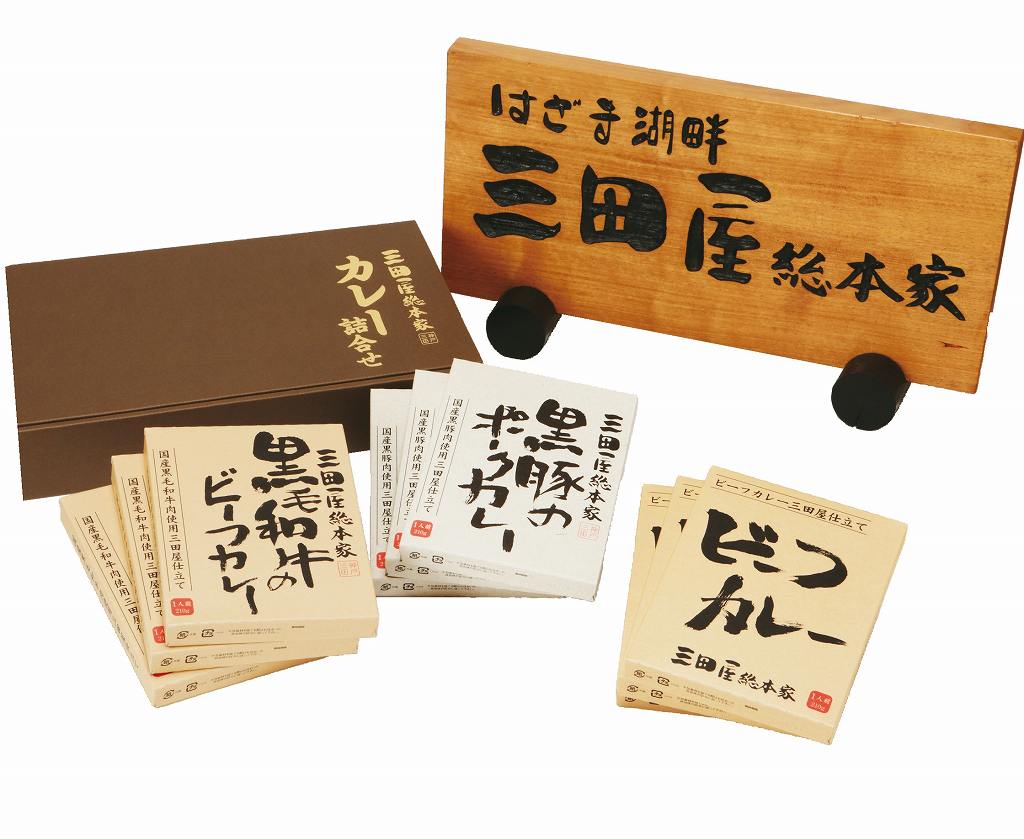 はざま湖畔
三田屋総本家
三田屋総本家
カレー
詰合せ
神戸
三田
三田屋総本家
黒毛和牛の
ビーフカレー
国産黒毛和牛肉使用三田屋仕立て
神戸
三田
1人前
210g
国産黒毛和牛肉使用三田屋仕立て
国産黒毛和牛肉使用三田屋仕立て
三田屋総本家
黒豚の
ポークカレー
国産黒豚肉使用三田屋仕立て
神戸
三田
1人前
210g
国産黒豚肉使用三田屋仕立て
国産黒豚肉使用三田屋仕立て
ビーフカレー三田屋仕立て
ビーフ
カレー
三田屋総本家
1人前
210g
ビーフ
ビーフ